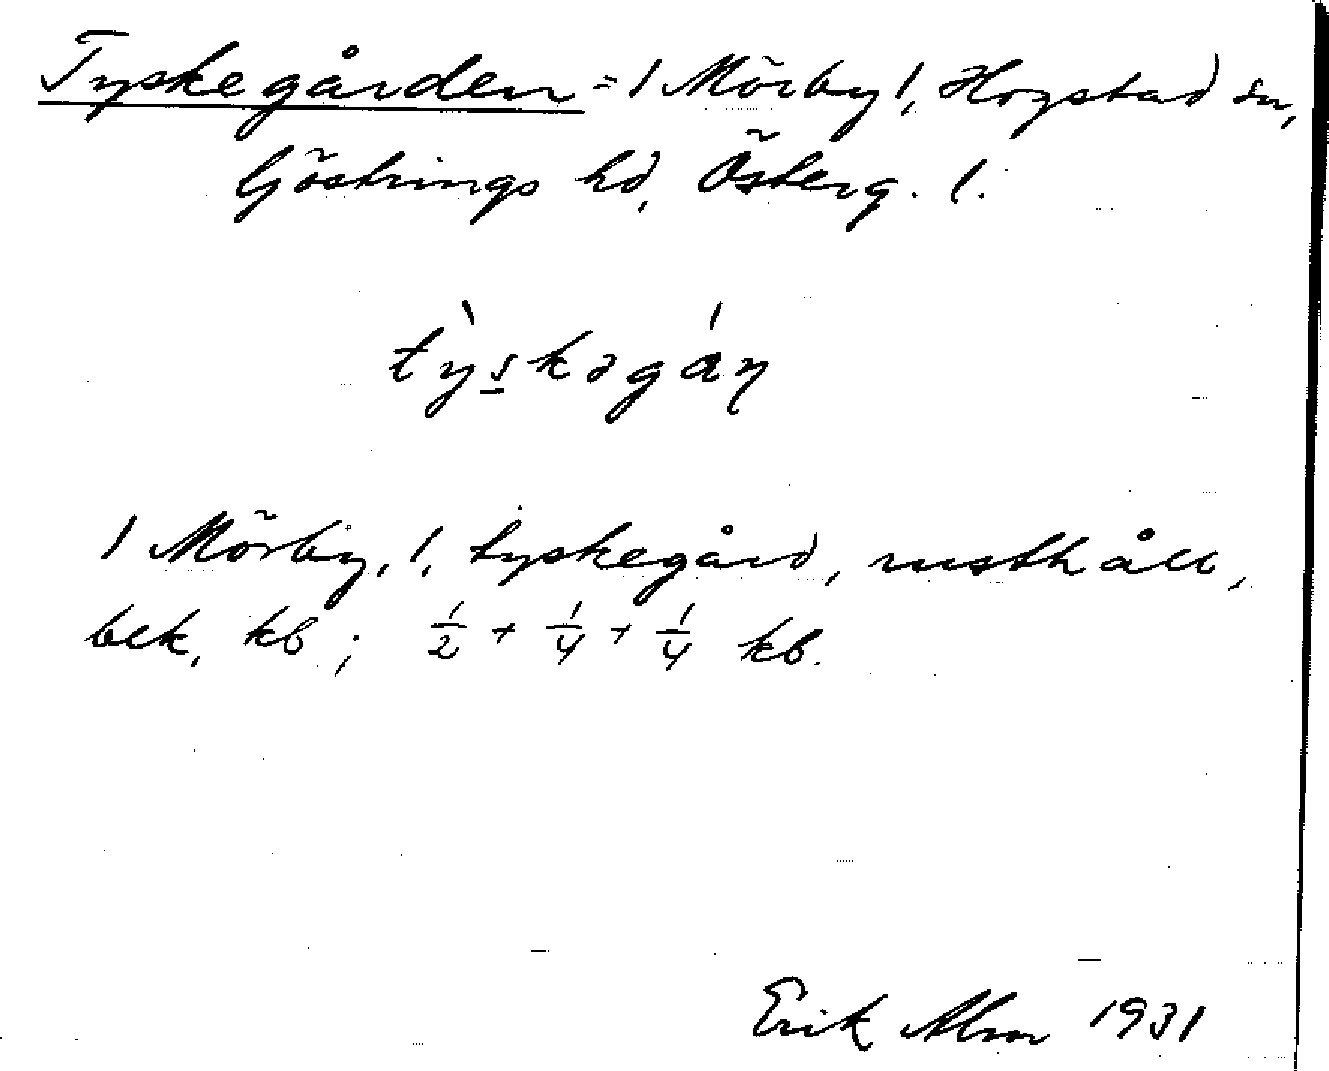 Tyskegården = 1 Mörby 1, Hogstad sn,
Göstrings hd, Österg. l.
tỳskəgáṇ
1 Mörby, 1, tyskegård, rusthåll,
bek. kb; 1/2 + 1/4 + 1/4 kb.
Erik Abm 1931